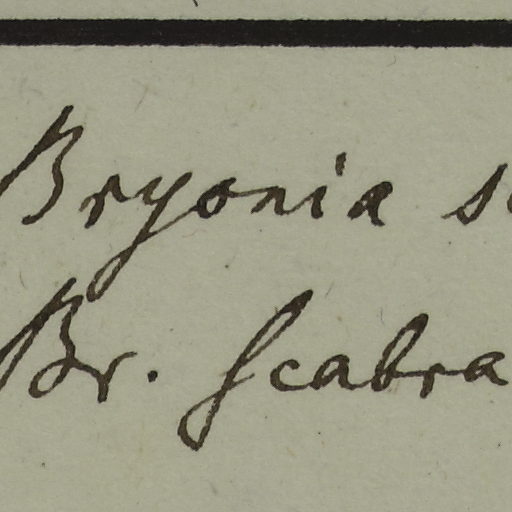 Bryonia
Br. scabra